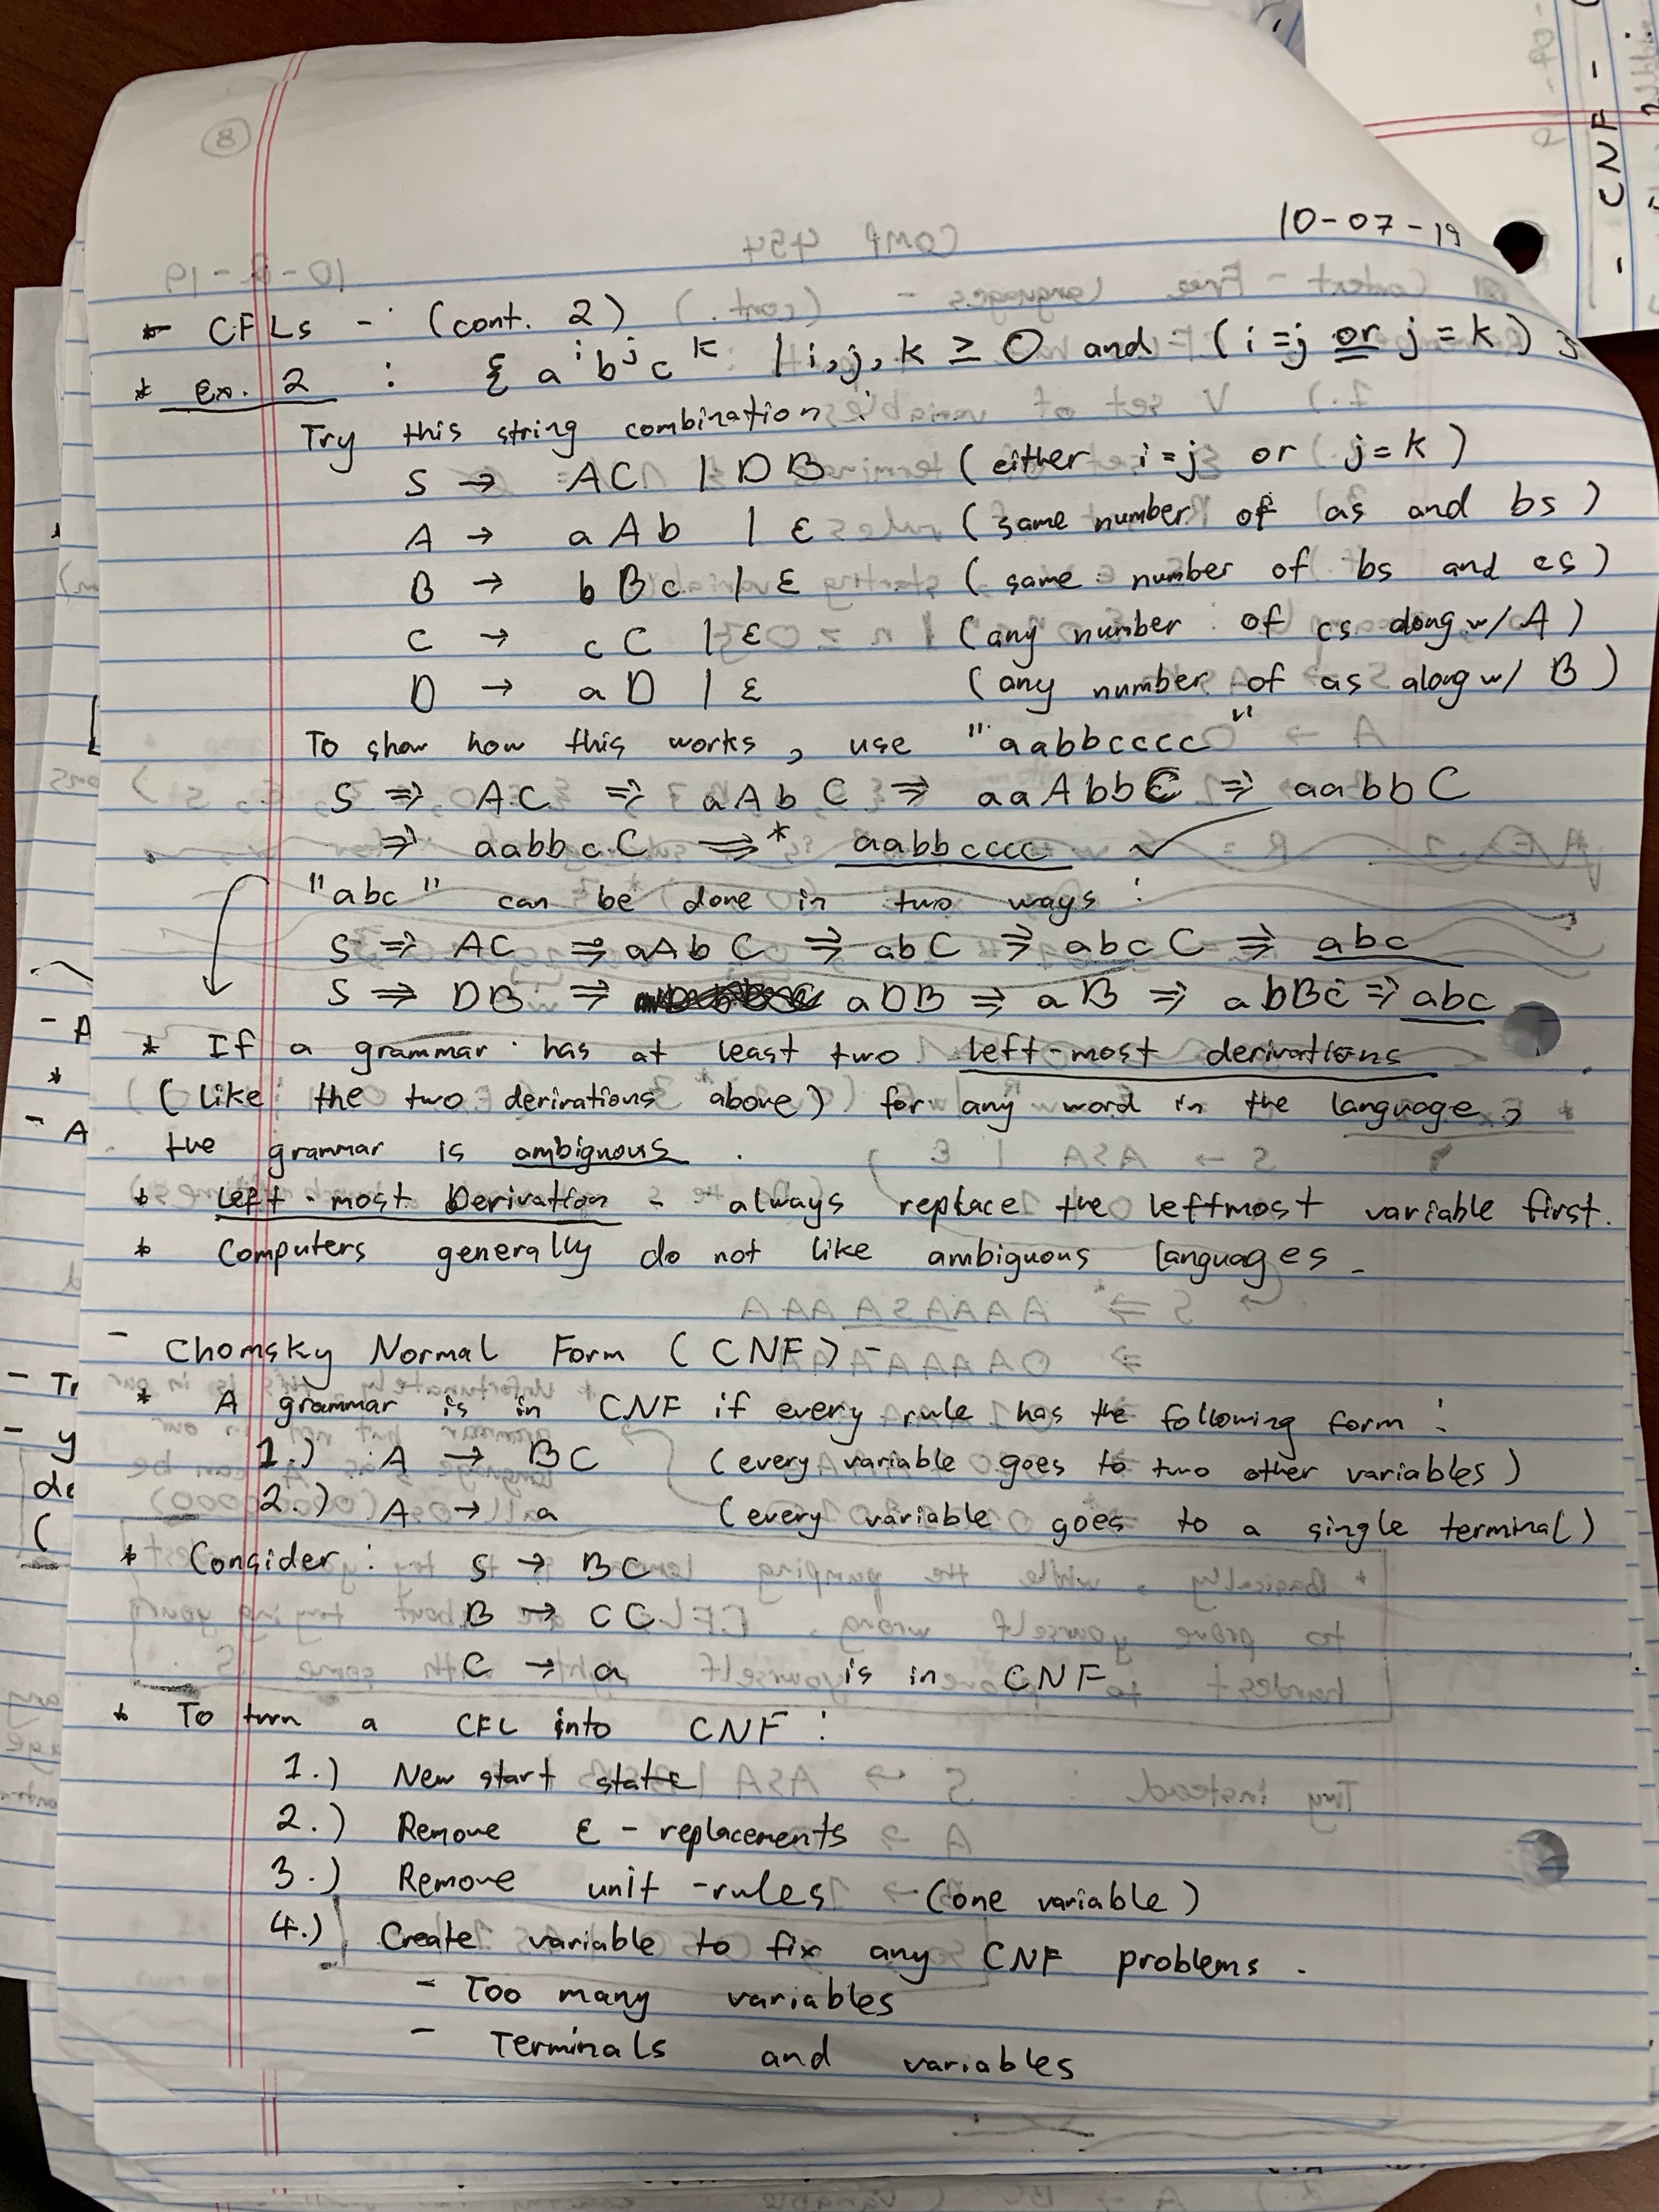 10-07-19
- CFLs - (cont. 2)
* Ex. 2 : { a^i b^j c^k | i, j, k ≥ 0 and (i = j or j = k) }
Try this string combination :
S → AC | DB (either i = j or j = k)
A → aAb | ε (same number of as and bs)
B → bBc | ε (same number of bs and cs)
C → cC | ε (any number of cs along w/ A)
D → aD | ε (any number of as along w/ B)
To show how this works, use "aabbcccc"
S ⇒ AC ⇒ aAbC ⇒ aaAbbC ⇒ aabbC
⇒ aabbcC ⇒* aabbcccc ✓
"abc" can be done in two ways :
S ⇒ AC ⇒ aAbC ⇒ abC ⇒ abcC ⇒ abc
S ⇒ DB ⇒ aDB ⇒ aB ⇒ abBc ⇒ abc
* If a grammar has at least two left-most derivations
(like the two derivations above) for any word in the language,
the grammar is ambiguous.
* Left-most Derivation - always replace the leftmost variable first.
* Computers generally do not like ambiguous languages.
- Chomsky Normal Form (CNF) -
* A grammar is in CNF if every rule has the following form :
1.) A → BC (every variable goes to two other variables)
2.) A → a (every variable goes to a single terminal)
* Consider : S → BC
B → CC
C → a is in CNF
* To turn a CFL into CNF :
1.) New start state
2.) Remove ε - replacements
3.) Remove unit-rules (one variable)
4.) Create variable to fix any CNF problems.
- Too many variables
- Terminals and variables
- CNF -